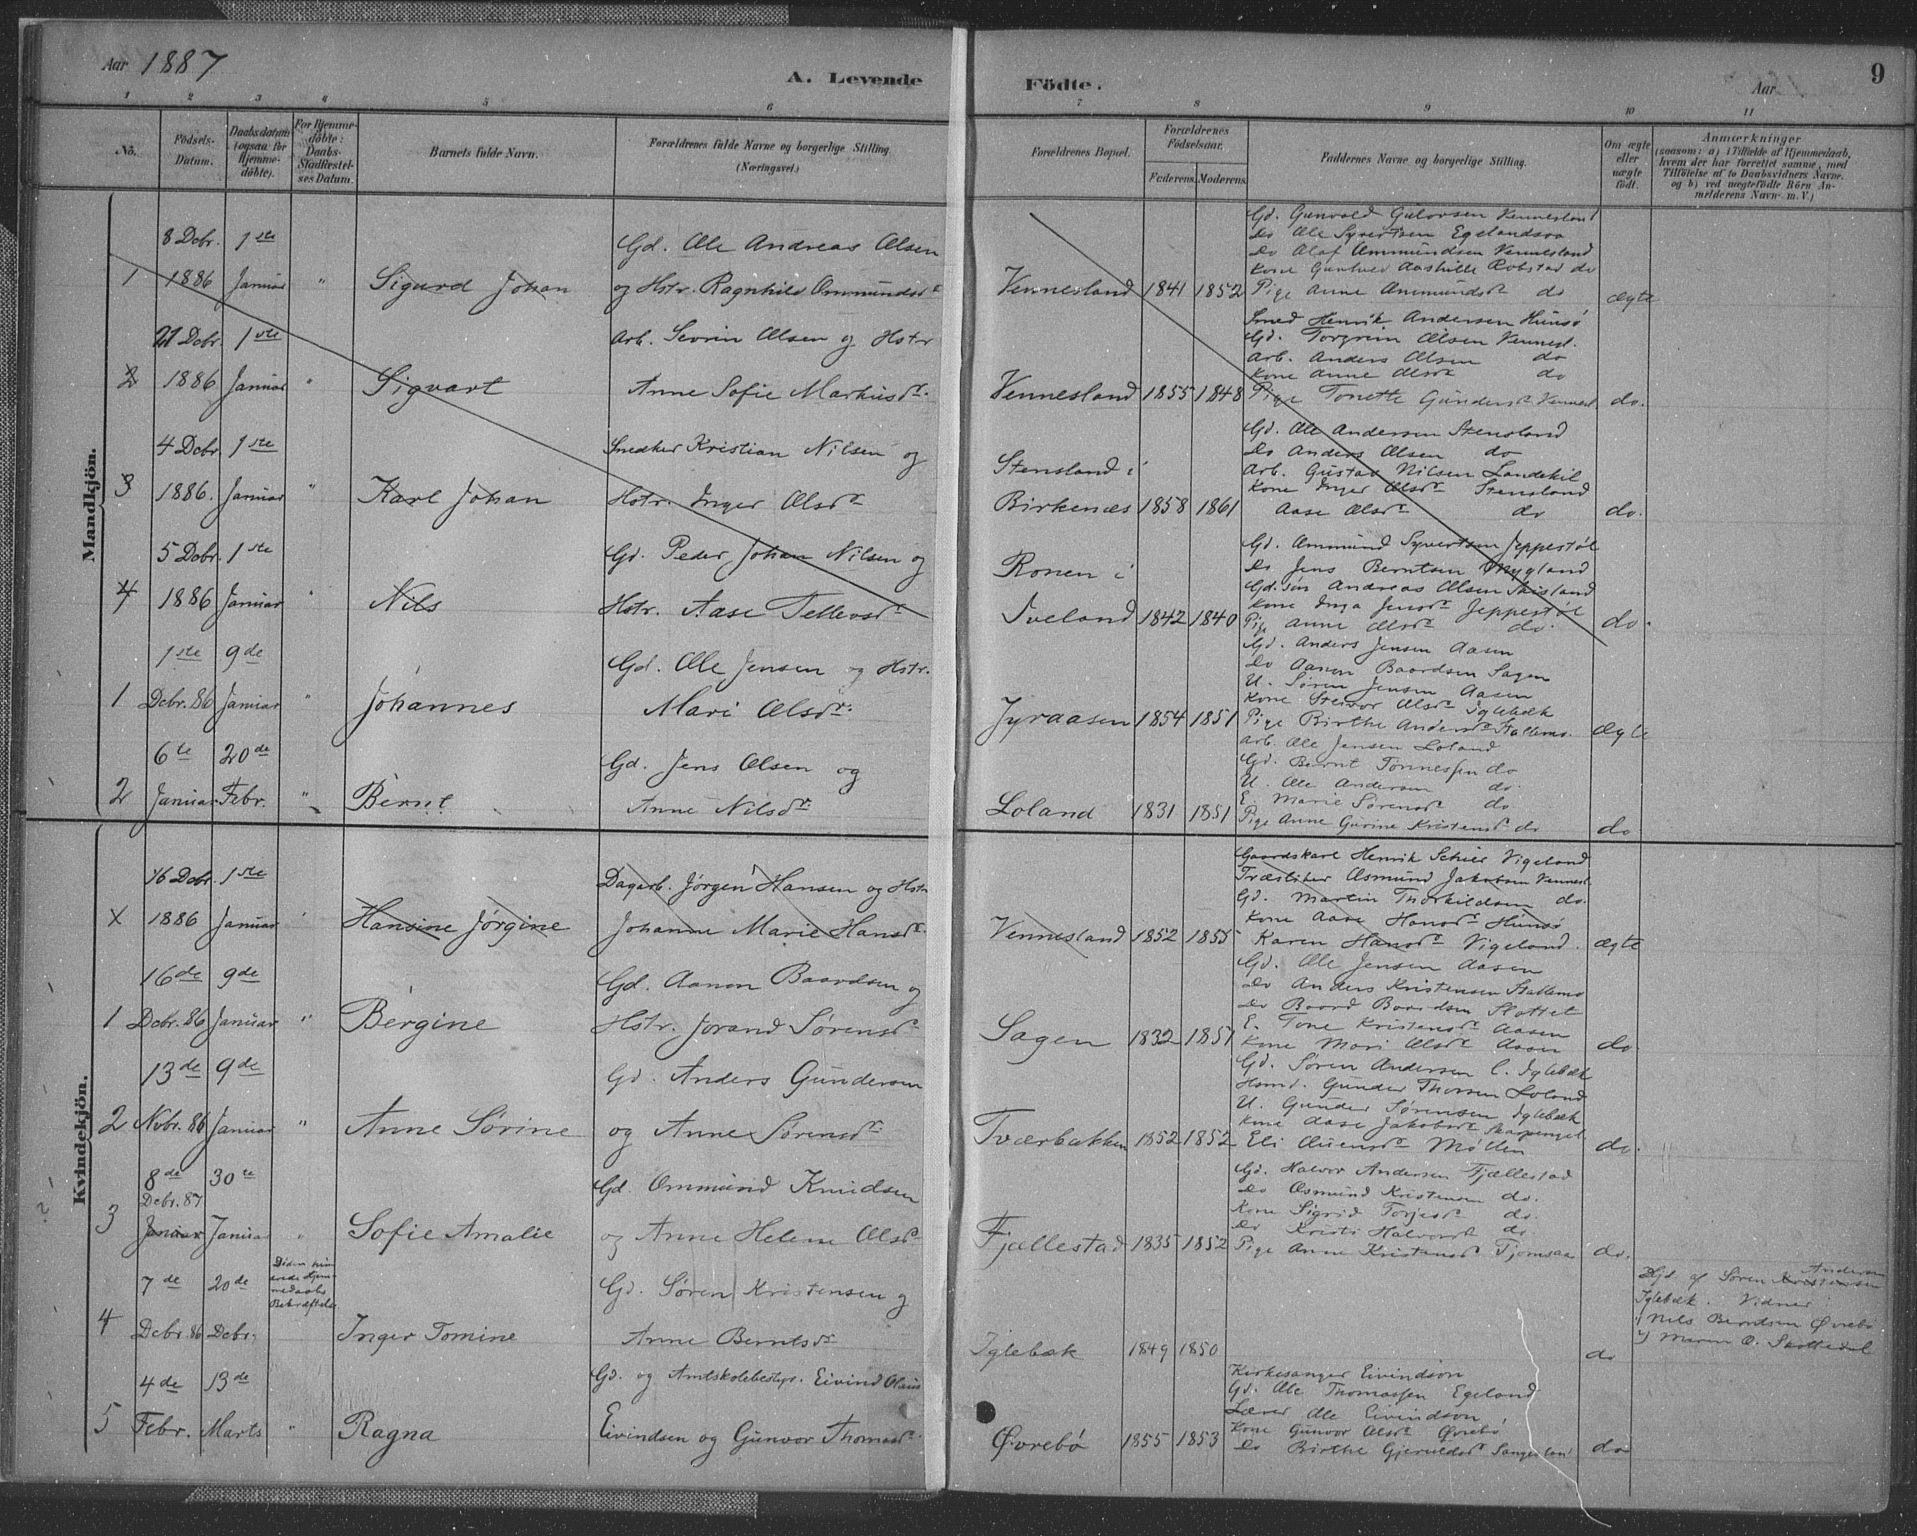 Aar 1887
A. Levende Födte.
Aar
9
1 2 3 4 5 6 7 8 9 10 11
No.
Födsels-Datum.
Daabsdatum (ogsaa for Hjemmedöbte).
For Hjemmedöbte: Daabs-Stadfæstelses Datum.
Barnets fulde Navn.
Forældrenes fulde Navne og borgerlige Stilling. (Næringsvei.)
Forældrenes Bopæl.
Forældrenes Födselsaar.
Faderens. Moderens.
Faddernes Navne og borgerlige Stilling.
Om ægte eller uægte födt.
Anmærkninger
(saasom: a) i Tilfælde af Hjemmedaab, hvem der har forrettet samme, med Tilföielse af to Daabsvidners Navne, og b) ved uægtefödte Börn Anmelderens Navn m. V.)
Mandkjön.
1 8 Dcbr. 1886 1ste Januar " Sigurd Johan
Gd. Ole Andreas Olsen
og Hstr. Ragnhild Ommundsd.
Vennesland 1841 1852
Gd. Gunvald Gulovsen Vennesland
Do Ole Syvertsen Egelandsaa
Do Olaf Ommundsen Vennesland
Kone Gunhild Aashille Robstad do
Pige Anne Ommundsd. do
ægte
2 21 Dcbr. 1886 1ste Januar " Sigvart
Arb. Sevrin Olsen og Hstr
Anne Sofie Markusd.
Vennesland 1855 1848
Smed Henrik Andersen Hunsø
Gd. Torgrim Olsen Vennesl.
Arb. Anders Olsen do
Kone Anne Olsd. do
Pige Tonette Gundersd. Vennesl.
do.
3 4 Dcbr. 1886. 1ste Januar " Karl Johan
Snedker Kristian Nilsen og
Hstr. Inger Olsd.
Stensland i
Birkenæs 1858 1861
Gd. Ole Andersen Stensland
Do Anders Olsen do
Arb. Gustav Nilsen Landekil
Kone Inger Olsd. Stensland
Aase Olsd. do
do.
4 5 Dcbr. 1886 1ste Januar " Nils
Gd. Peder Johan Nilsen og
Hstr. Aase Tellevsd.
Ronen i
Iveland 1842 1840
Gd. Ommund Syvertsen Jeppestøl
Do Jens Berntsen Mygland
Gd. søn Andreas Olsen Skisland
Kone Inga Jensd. Jeppestøl
Pige Anne Olsd. do.
do.
1 1ste Dcbr. 86 9de Januar " Johannes
Gd. Ole Jensen og Hstr.
Mari Olsdr.
Jyraasen 1854 1851
Gd. Anders Jensen Aasen
Do Aanon Baardsen Sagen
U. Søren Jensen Aasen
Kone Steivor Olsd. Iglebæk
Pige Birthe Andersd. Stallemo.
ægte
2 6te Januar 20de Febr. " Bernt
Gd. Jens Olsen og
Anne Nilsdr.
Loland 1831 1851
Arb. Ole Jensen Loland
Gd. Bernt Tønnessen do
U. Ole Andersen do.
E. Marie Sørensd. do.
Pige Anne Gurine Kristensd. do
do
Kvindekjön.
X 16 Dcbr. 1886 1ste Januar " Hansine Jørgine
Dagarb. Jørgen Hansen og Hstr
Johanne Marie Hansd.
Vennesland 1852 1855
Gaardskarl Henrik Schier Vigeland
Træsliber Osmund Jakobsen Vennesl.
Gd. Martin Thorkildsen do.
Kone Aase Hansd. Hunsø
Karen Hansd. Vigeland.
ægte
1 16de Dcbr. 86 9de Januar " Bergine
Gd. Aanon Baardsen og
Hstr. Jorand Sørensd.
Sagen 1832 1851
Gd. Ole Jensen Aasen
Do Anders Kristensen Stallemo
Do Baard Baardsen Slottet
E. Tone Kristensd. Aasen
Kone Mari Olsd. Aasen
do.
2 13de Nvbr. 86 9de Januar " Anne Sørine
Gd. Anders Gundersen
og Anne Sørensd.
Tværbakken 1852 1852
Gd. Søren Andersen C. Iglebæk
Hsmd. Gunder Thorsen Loland
U. Gunder Sørensen Iglebæk
Kone Aase Jakobsd. Skarpengel
Eli Øiensd. Mollen
do.
3 8de Dcbr. 87 Januar 30te Januar " Sofie Amalie
Gd. Ommund Knudsen
og Anne Helene Olsd.
Fjællestad 1835 1852
Gd. Halvor Andersen Fjællestad
Do Osmund Kristensen do.
Kone Sigrid Torjesd. do.
Do Kristi Halvorsd. do
Pige Anne Kristensd. Tjomsaa
do.
4 7de Dcbr. 86 20de Dcbr. Inger Tomine
Gd. Søren Kristensen og
Anne Berntsdr.
Iglebæk 1849 1850
do
Gd. af Søren Kristensen Andersen
Iglebæk. Vidner:
1) Nils Berntsen Øvrebø
2) Maren O.
5 4de Febr. 13de Marts " Ragna
Gd. og Amtskolebestyr. Eivind Olaus
Eivindsen og Gunvor Thomasd.
Øvrebø 1855 1853
Kirkesanger Eivindson
Gd. Ole Thomassen Egeland
Lærer Ole Eivindson
Kone Gunvor Olsd. Øvrebø
Do Birthe Gjeruldsd. Sangesland
do